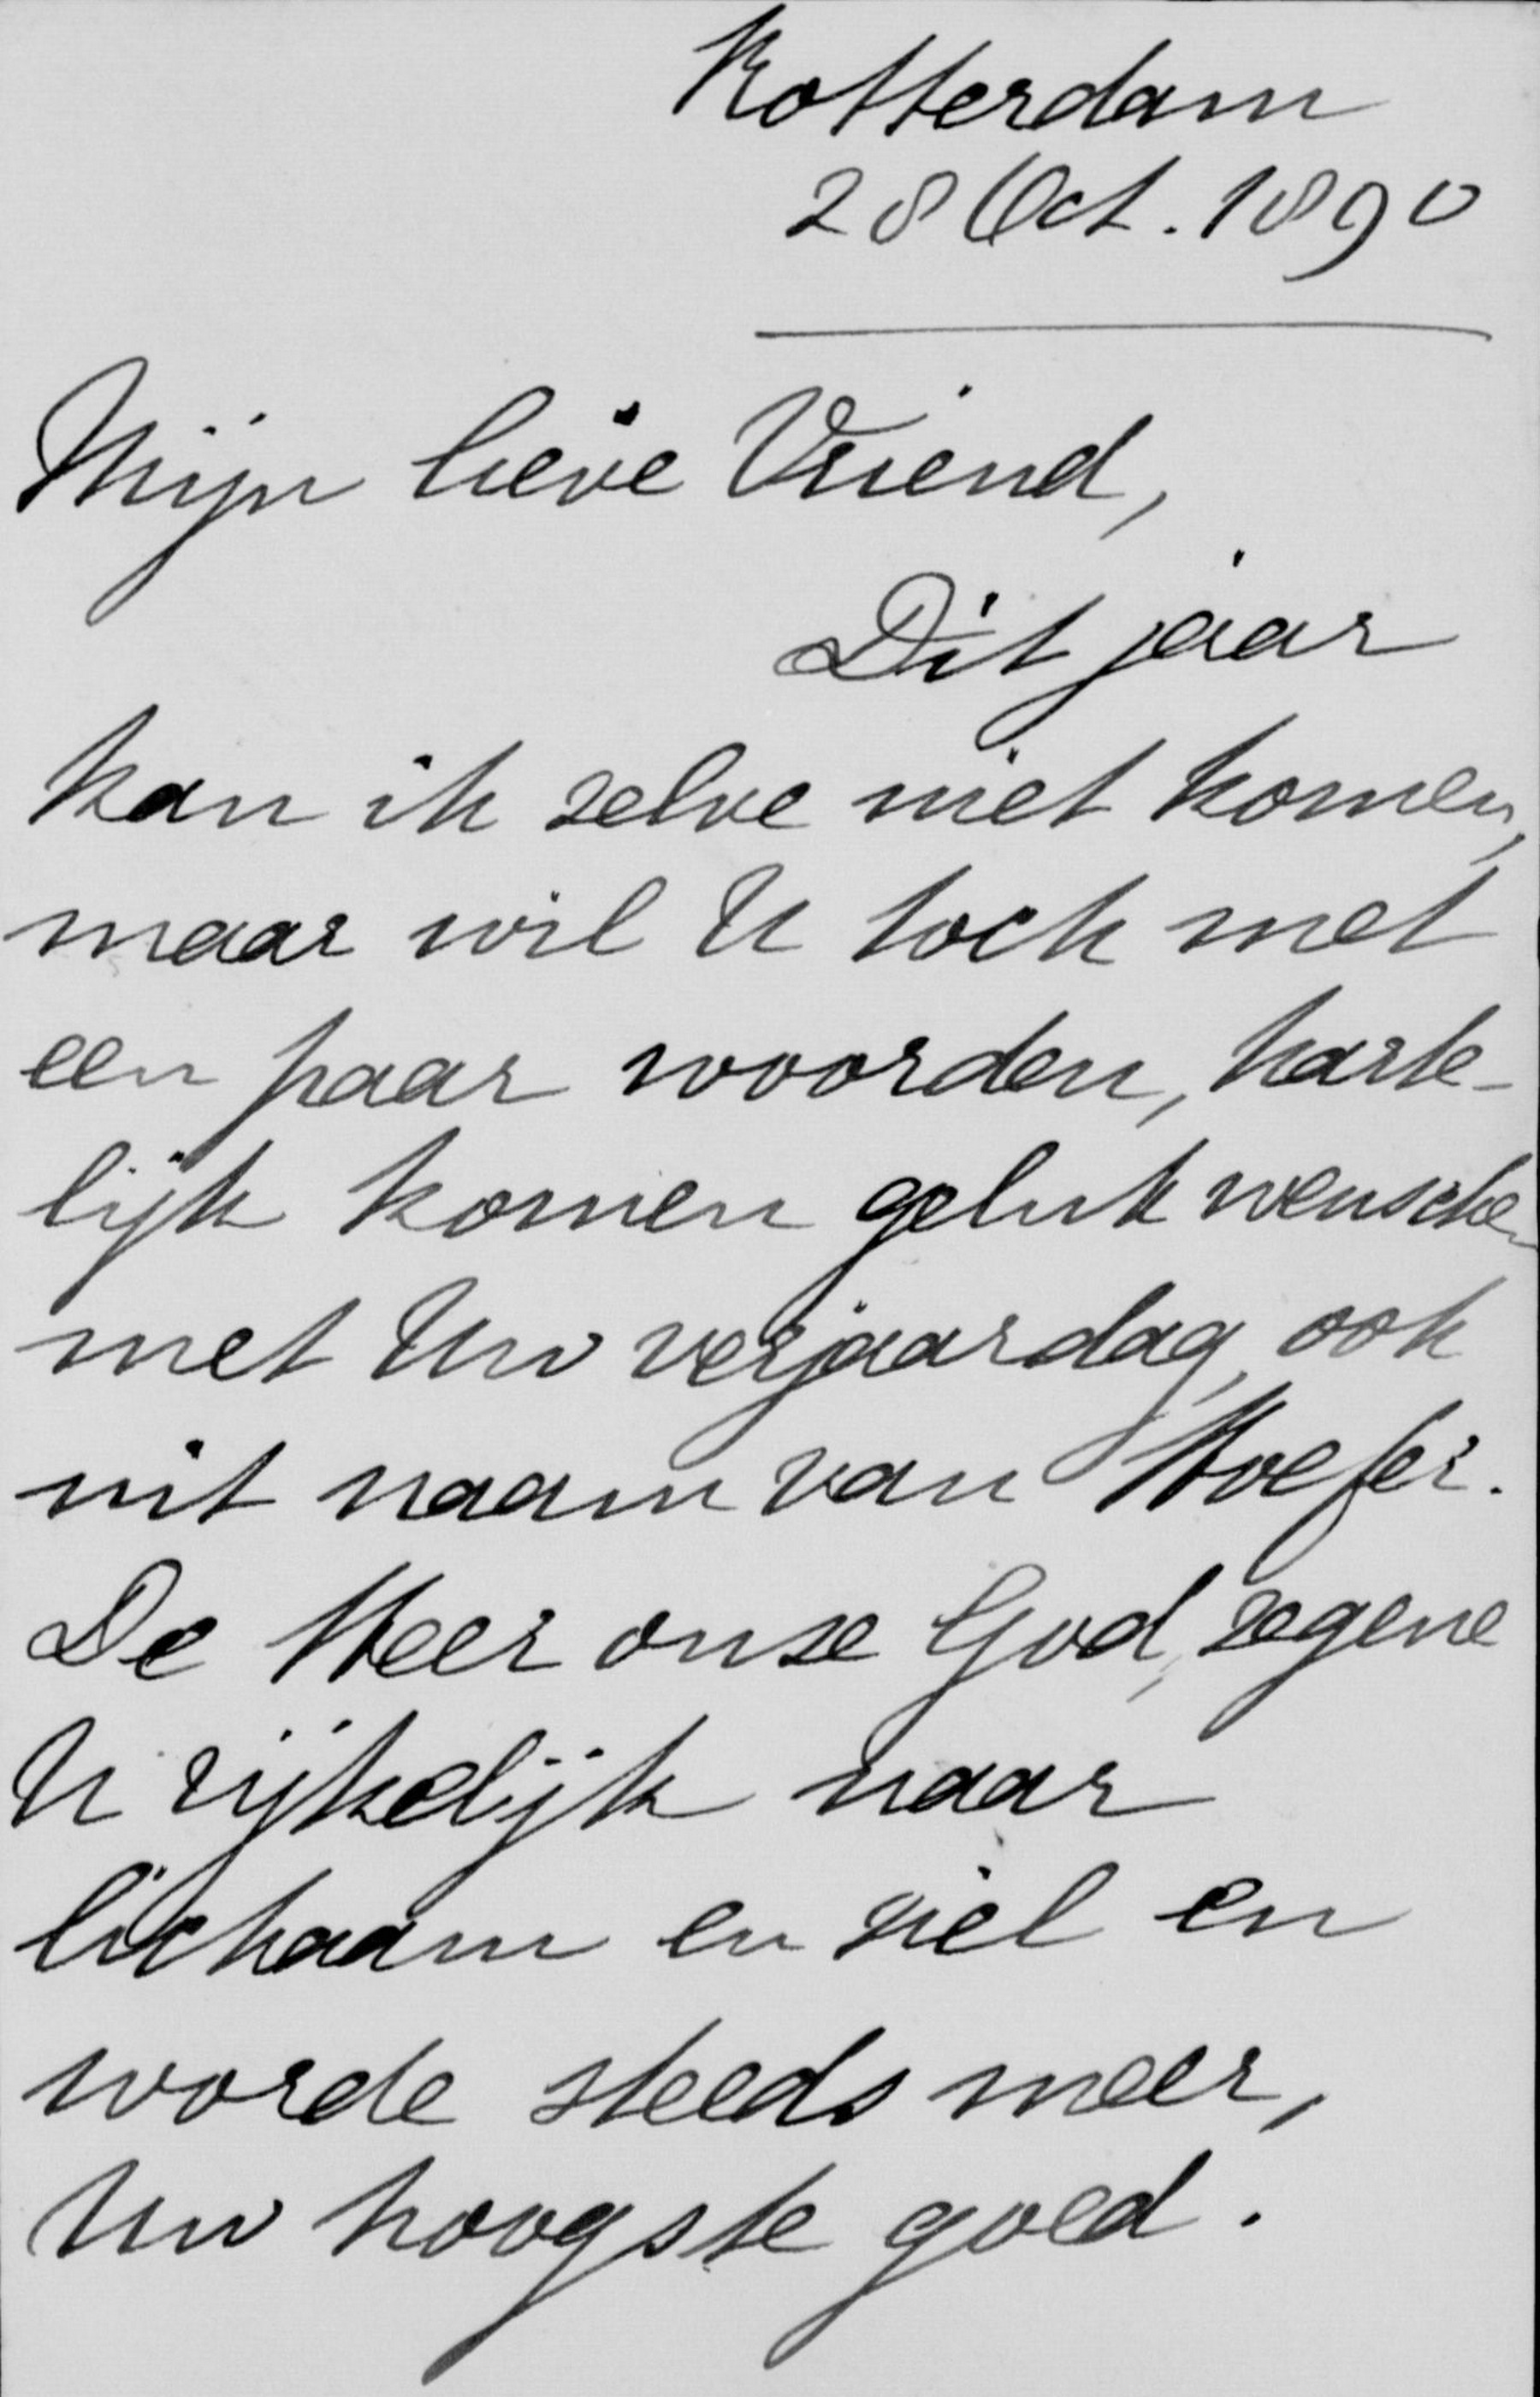 Rotterdam
28 Oct. 1890
Mijn lieve Vriend,
Dit jaar
kan ik zelve niet komen,
maar wil U toch met
een paar woorden, harte-
lijk komen geluk wenschen
met Uw verjaardag, ook
uit naam van Hoefer.
De Heer onze God, zegene
U rijkelijk naar
lichaam en ziel en
worde steeds meer,
Uw hoogste goed.